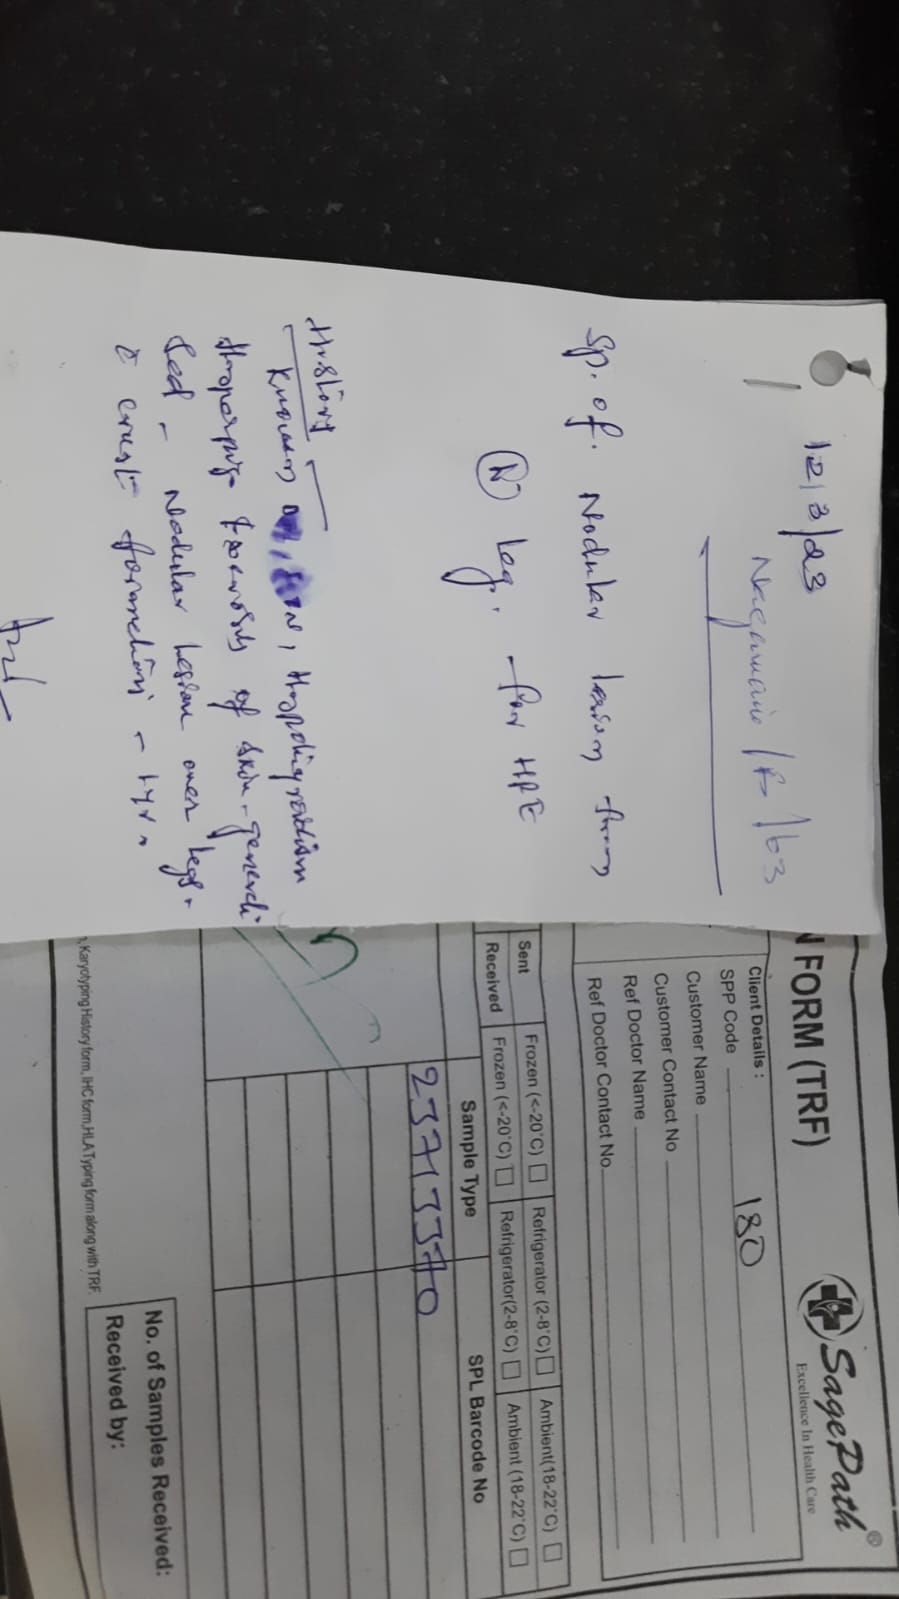 12/3/23
Nagamani / F / 63
Sp. of. Nodular lesion from
leg. - for HPE
History
Known HTN, Hypothyroidism
of skin - generali
sed - Nodular lesion over legs.
c̄ crust formation - 1 yr.
N FORM (TRF)
SagePath®
Excellence In Health Care
Client Details :
SPP Code 180
Customer Name
Customer Contact No
Ref Doctor Name
Ref Doctor Contact No
Sent Frozen (<-20˚C) Refrigerator (2-8˚C) Ambient(18-22˚C)
Received Frozen (<-20˚C) Refrigerator(2-8˚C) Ambient (18-22˚C)
Sample Type SPL Barcode No
23713370
, Karyotyping History form, IHC form,HLA Typing form along with TRF.
No. of Samples Received:
Received by: